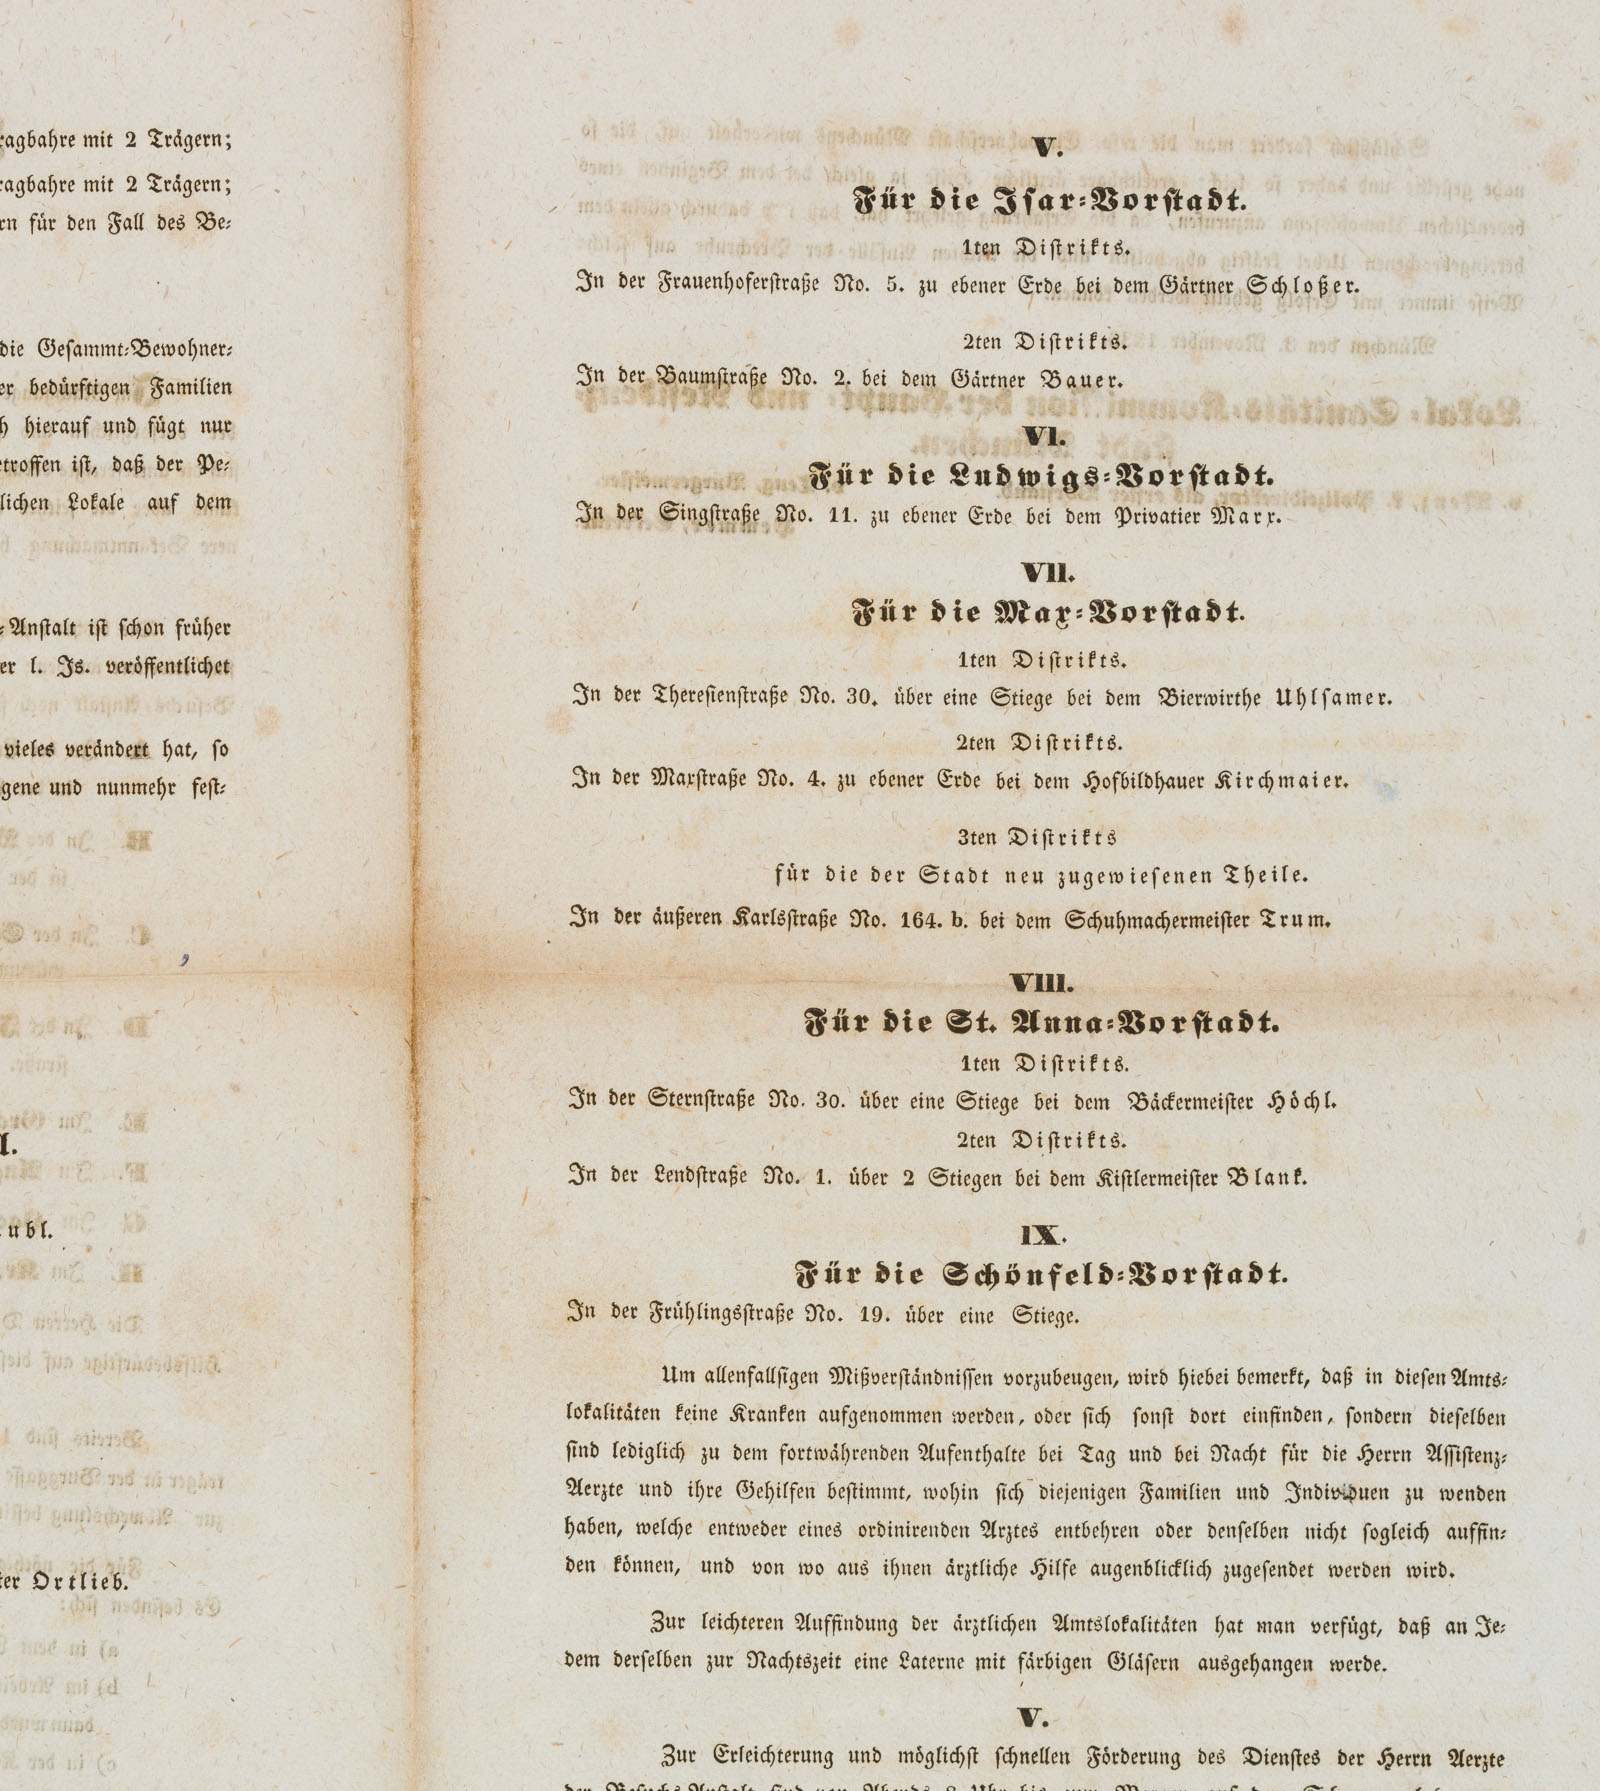 ragbahre mit 2 Trägern;
ragbahre mit 2 Trägern;
rn für den Fall des Be-
die Gesammt-Bewohner-
er bedürftigen Familien
h hierauf und fügt nur
etroffen ist, daß der Pe-
lichen Lokale auf dem
-Anstalt ist schon früher
er l. Js. veröffentlichet
vieles verändert hat, so
gene und nunmehr fest-
l.
ubl.
ter Ortlieb.
V.
Für die Isar-Vorstadt.
1ten Distrikts.
In der Frauenhoferstraße No. 5. zu ebener Erde bei dem Gärtner Schloßer.
2ten Distrikts.
In der Baumstraße No. 2. bei dem Gärtner Bauer.
VI.
Für die Ludwigs-Vorstadt.
In der Singstraße No. 11. zu ebener Erde bei dem Privatier Marx.
VII.
Für die Max-Vorstadt.
1ten Distrikts.
In der Theresienstraße No. 30. über eine Stiege bei dem Bierwirthe Uhlsamer.
2ten Distrikts.
In der Maxstraße No. 4. zu ebener Erde bei dem Hofbildhauer Kirchmaier.
3ten Distrikts
für die der Stadt neu zugewiesenen Theile.
In der äußeren Karlsstraße No. 164. b. bei dem Schuhmachermeister Trum.
VIII.
Für die St. Anna-Vorstadt.
1ten Distrikts.
In der Sternstraße No. 30. über eine Stiege bei dem Bäckermeister Höchl.
2ten Distrikts.
In der Lendstraße No. 1. über 2 Stiegen bei dem Kistlermeister Blank.
IX.
Für die Schönfeld-Vorstadt.
In der Frühlingsstraße No. 19. über eine Stiege.
Um allenfallsigen Mißverständnissen vorzubeugen, wird hiebei bemerkt, daß in diesen Amts-
lokalitäten keine Kranken aufgenommen werden, oder sich sonst dort einfinden, sondern dieselben
sind lediglich zu dem fortwährenden Aufenthalte bei Tag und bei Nacht für die Herrn Assistenz-
Aerzte und ihre Gehilfen bestimmt, wohin sich diejenigen Familien und Individuen zu wenden
haben, welche entweder eines ordinirenden Arztes entbehren oder denselben nicht sogleich auffin-
den können, und von wo aus ihnen ärztliche Hilfe augenblicklich zugesendet werden wird.
Zur leichteren Auffindung der ärztlichen Amtslokalitäten hat man verfügt, daß an Je-
dem derselben zur Nachtszeit eine Laterne mit färbigen Gläsern ausgehangen werde.
V.
Zur Erleichterung und möglichst schnellen Förderung des Dienstes der Herrn Aerzte